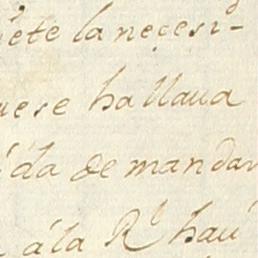 ete la neçesi-
uese hallaua
da de mandar
á la Rl hau